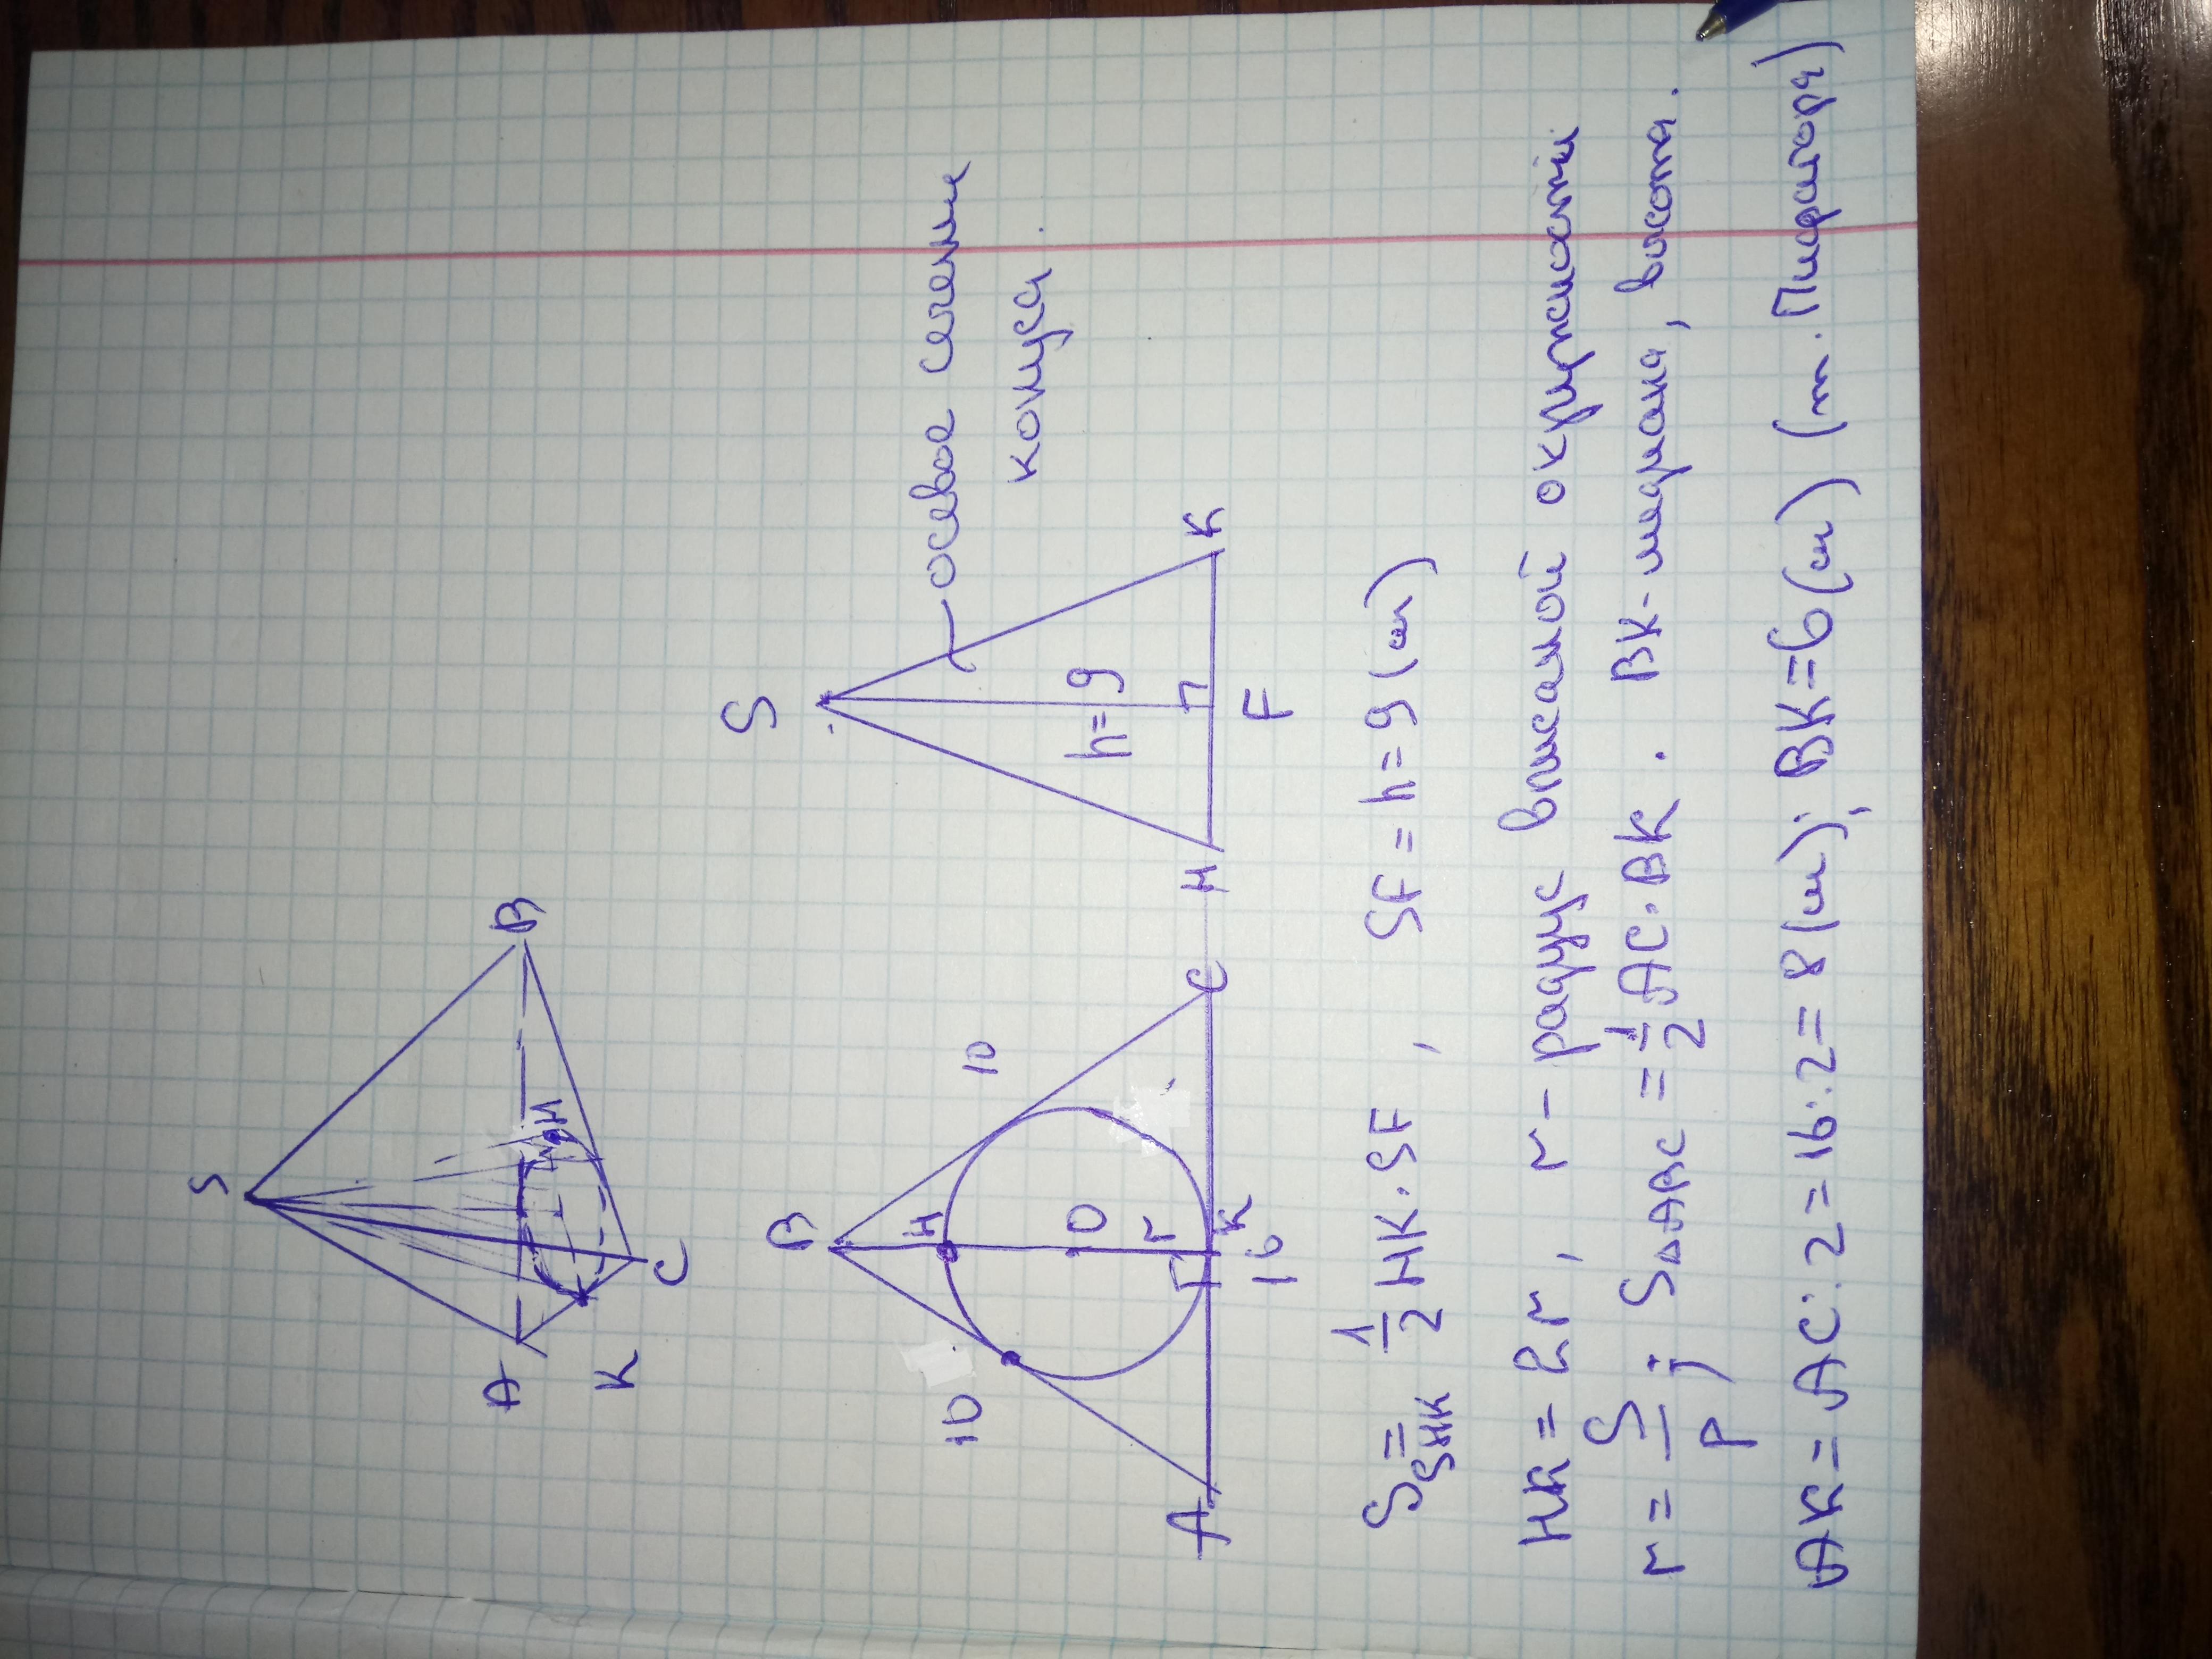 S
A
B
K
C
H
B
H
10
10
O
r
A
K
C
16
S
h=9
H
F
K
осевое сечение
конуса.
S SHK = 1/2 HK·SF, SF = h = 9 (см)
HK = 2r, r - радиус вписаной окружности
r = S/P; S△ABC = 1/2 AC·BK. BK-медиана, высота.
AK = AC:2 = 16:2 = 8 (см); BK=6(см) (т. Пифагора)